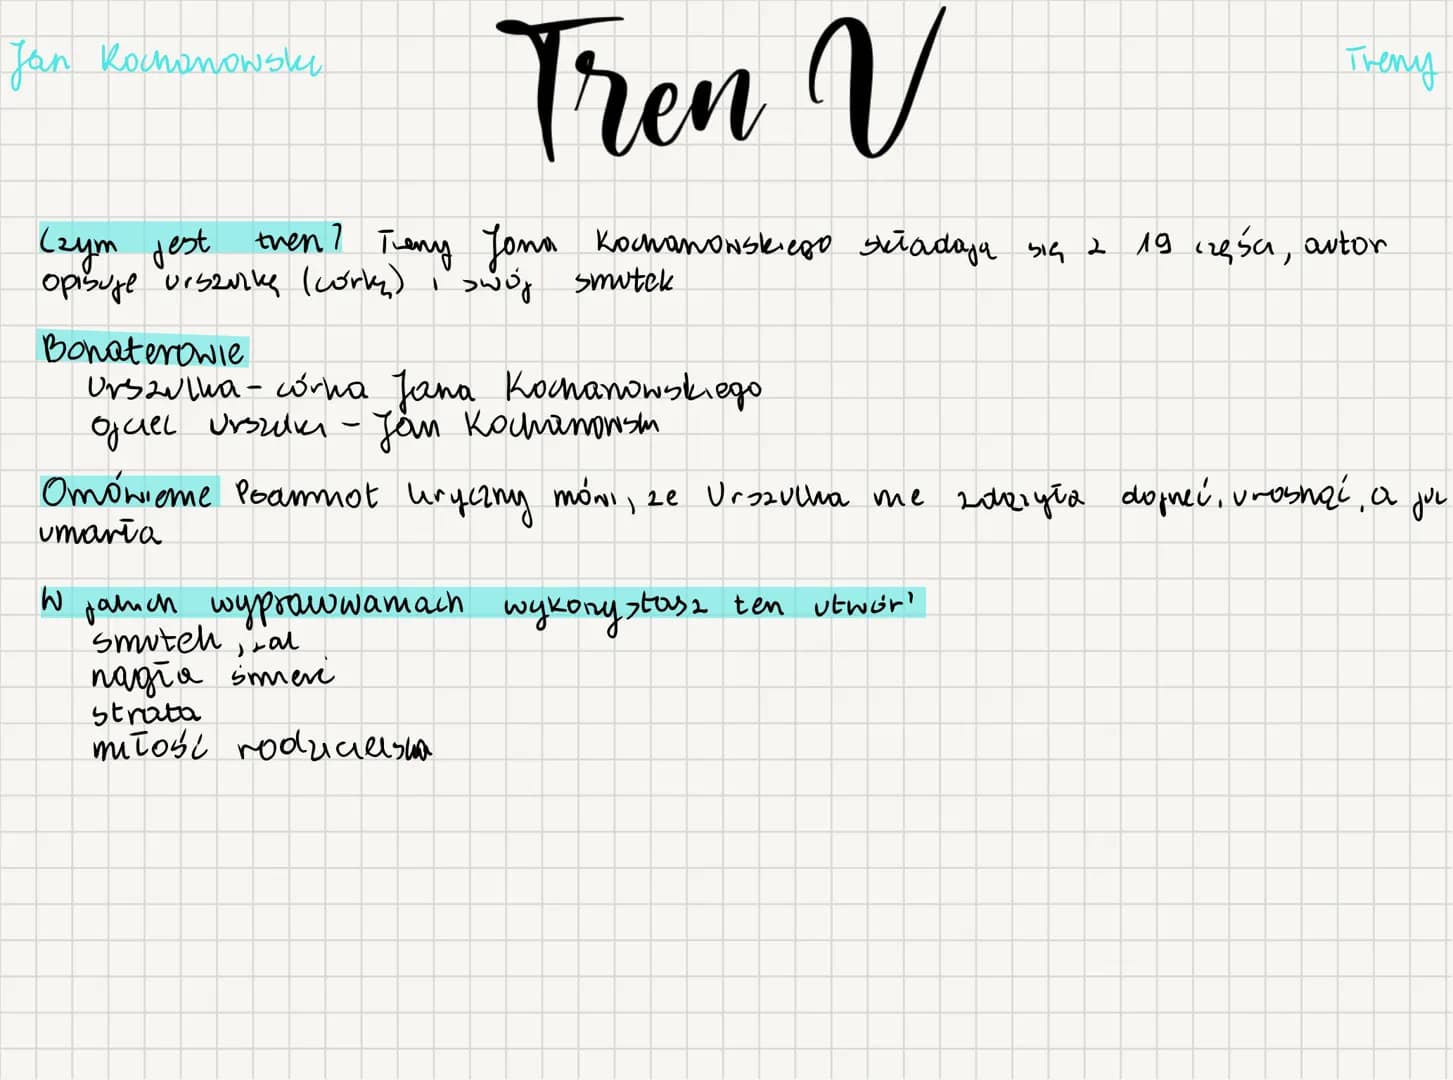 Jan Kochanowski
Tren V
Treny
Czym jest tren? Treny Jana Kochanowskiego składają się z 19 części, autor
opisuje Urszulkę (córkę) i swój smutek
Bohaterowie
Urszulka - córka Jana Kochanowskiego
ojciec Urszulki - Jan Kochanowski
Omówienie Podmiot liryczny mówi, że Urszulka nie zdążyła dojrzeć, urosnąć, a już
umarła
W jakich wypracowaniach wykorzystasz ten utwór?
smutek, żal
nagła śmierć
strata
miłość rodzicielska